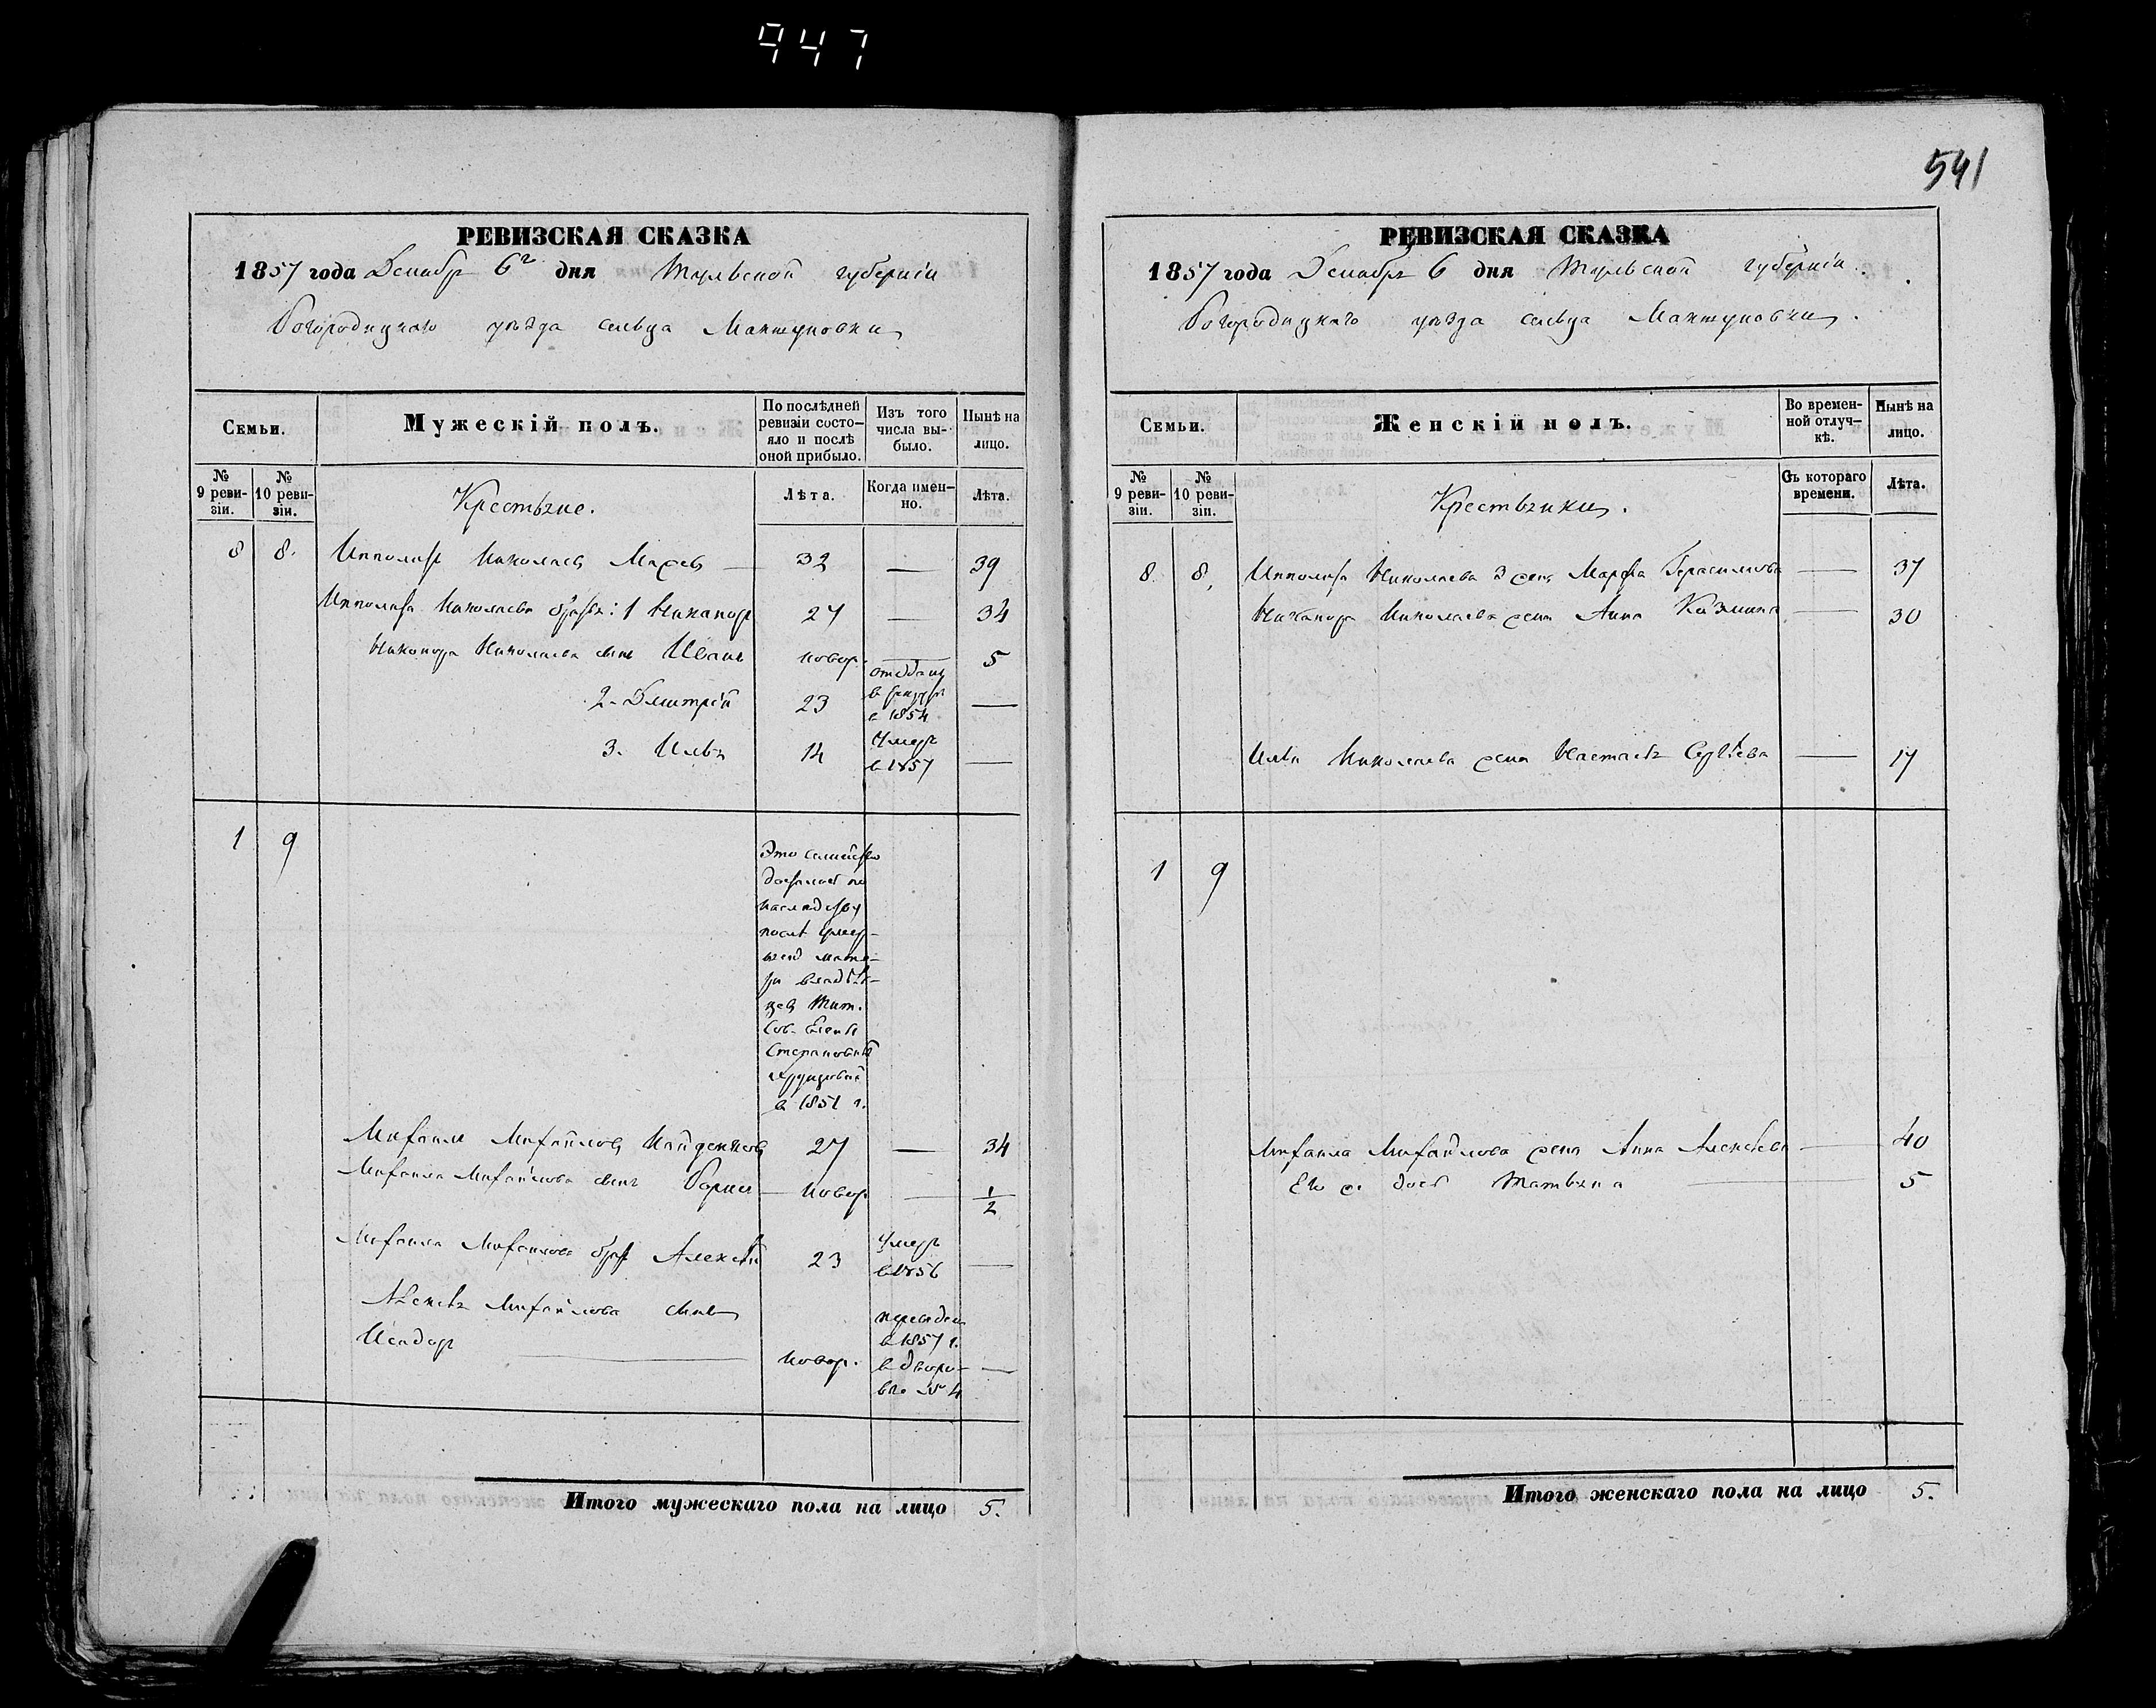 447
541
РЕВИЗСКАЯ СКАЗКА
1857 года Декабря 6го дня Тульской губерніи
Богородицкаго уѣзда сельца Мантуповки
Семьи.
Мужескій полъ.
По послѣдней ревизіи состо-
яло и послѣ оной прибыло.
Изъ того числа вы-
было.
Нынѣ на лицо.
№ 9 реви-
зіи.
№ 10 реви-
зіи.
Крестьяне.
Лѣта.
Когда имен-
но.
Лѣта.
8 8. Ипполитъ Николаевъ 32 — 39
Ипполита Николаева братья: 1 Никаноръ 27 — 34
Никанора Николаева сынъ Иванъ новор. — 5
2. Дмитрій 23 отданъ в рекруты в 1854 —
3. Илья 14 умеръ в 1857 —
1 9
Это семейство
досталось по
наслѣдству
послѣ умер-
шей мате-
ри владѣль-
цевъ Тит.
Сов. Елены
Степановны
в 1851 г.
Михаилъ Михайловъ Найденковъ 27 — 34
Михаила Михайлова сынъ Борисъ новор — 1/2
Михаила Михайлова братъ Алексѣй 23 умеръ в 1856 —
Алексѣя Михайлова сынъ
Исидоръ новор. переведенъ в 1857 г. в дворо-
вые № 4 —
Итого мужескаго пола на лицо 5.
РЕВИЗСКАЯ СКАЗКА
1857 года Декабря 6 дня Тульской губерніи
Богородицкаго уѣзда сельца Мантуповки.
Семьи.
Женскій полъ.
Во времен-
ной отлуч-
кѣ.
Нынѣ на лицо.
№ 9 реви-
зіи.
№ 10 реви-
зіи.
Крестьянки.
Съ котораго времени.
Лѣта.
8. 8. Ипполита Николаева жена Марфа Герасимова — 37
Никанора Николаева жена Анна Козмина — 30
Ильи Николаева жена Настасья — 17
1 9
Михаила Михайлова жена Анна Алексѣева — 40
Его дочь Татьяна — 5
Итого женскаго пола на лицо 5.